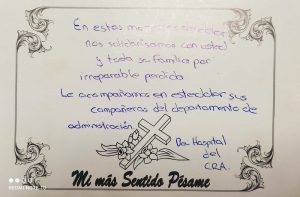 En estos momentos de dolor
Nos solidarisamos con usted
y toda su familia por
irreparable perdida
Le acompañamos en este dolor sus
compañeras del departamento de
administración.
Hospital
del
C.R.A.
Mi más Sentido Pésame